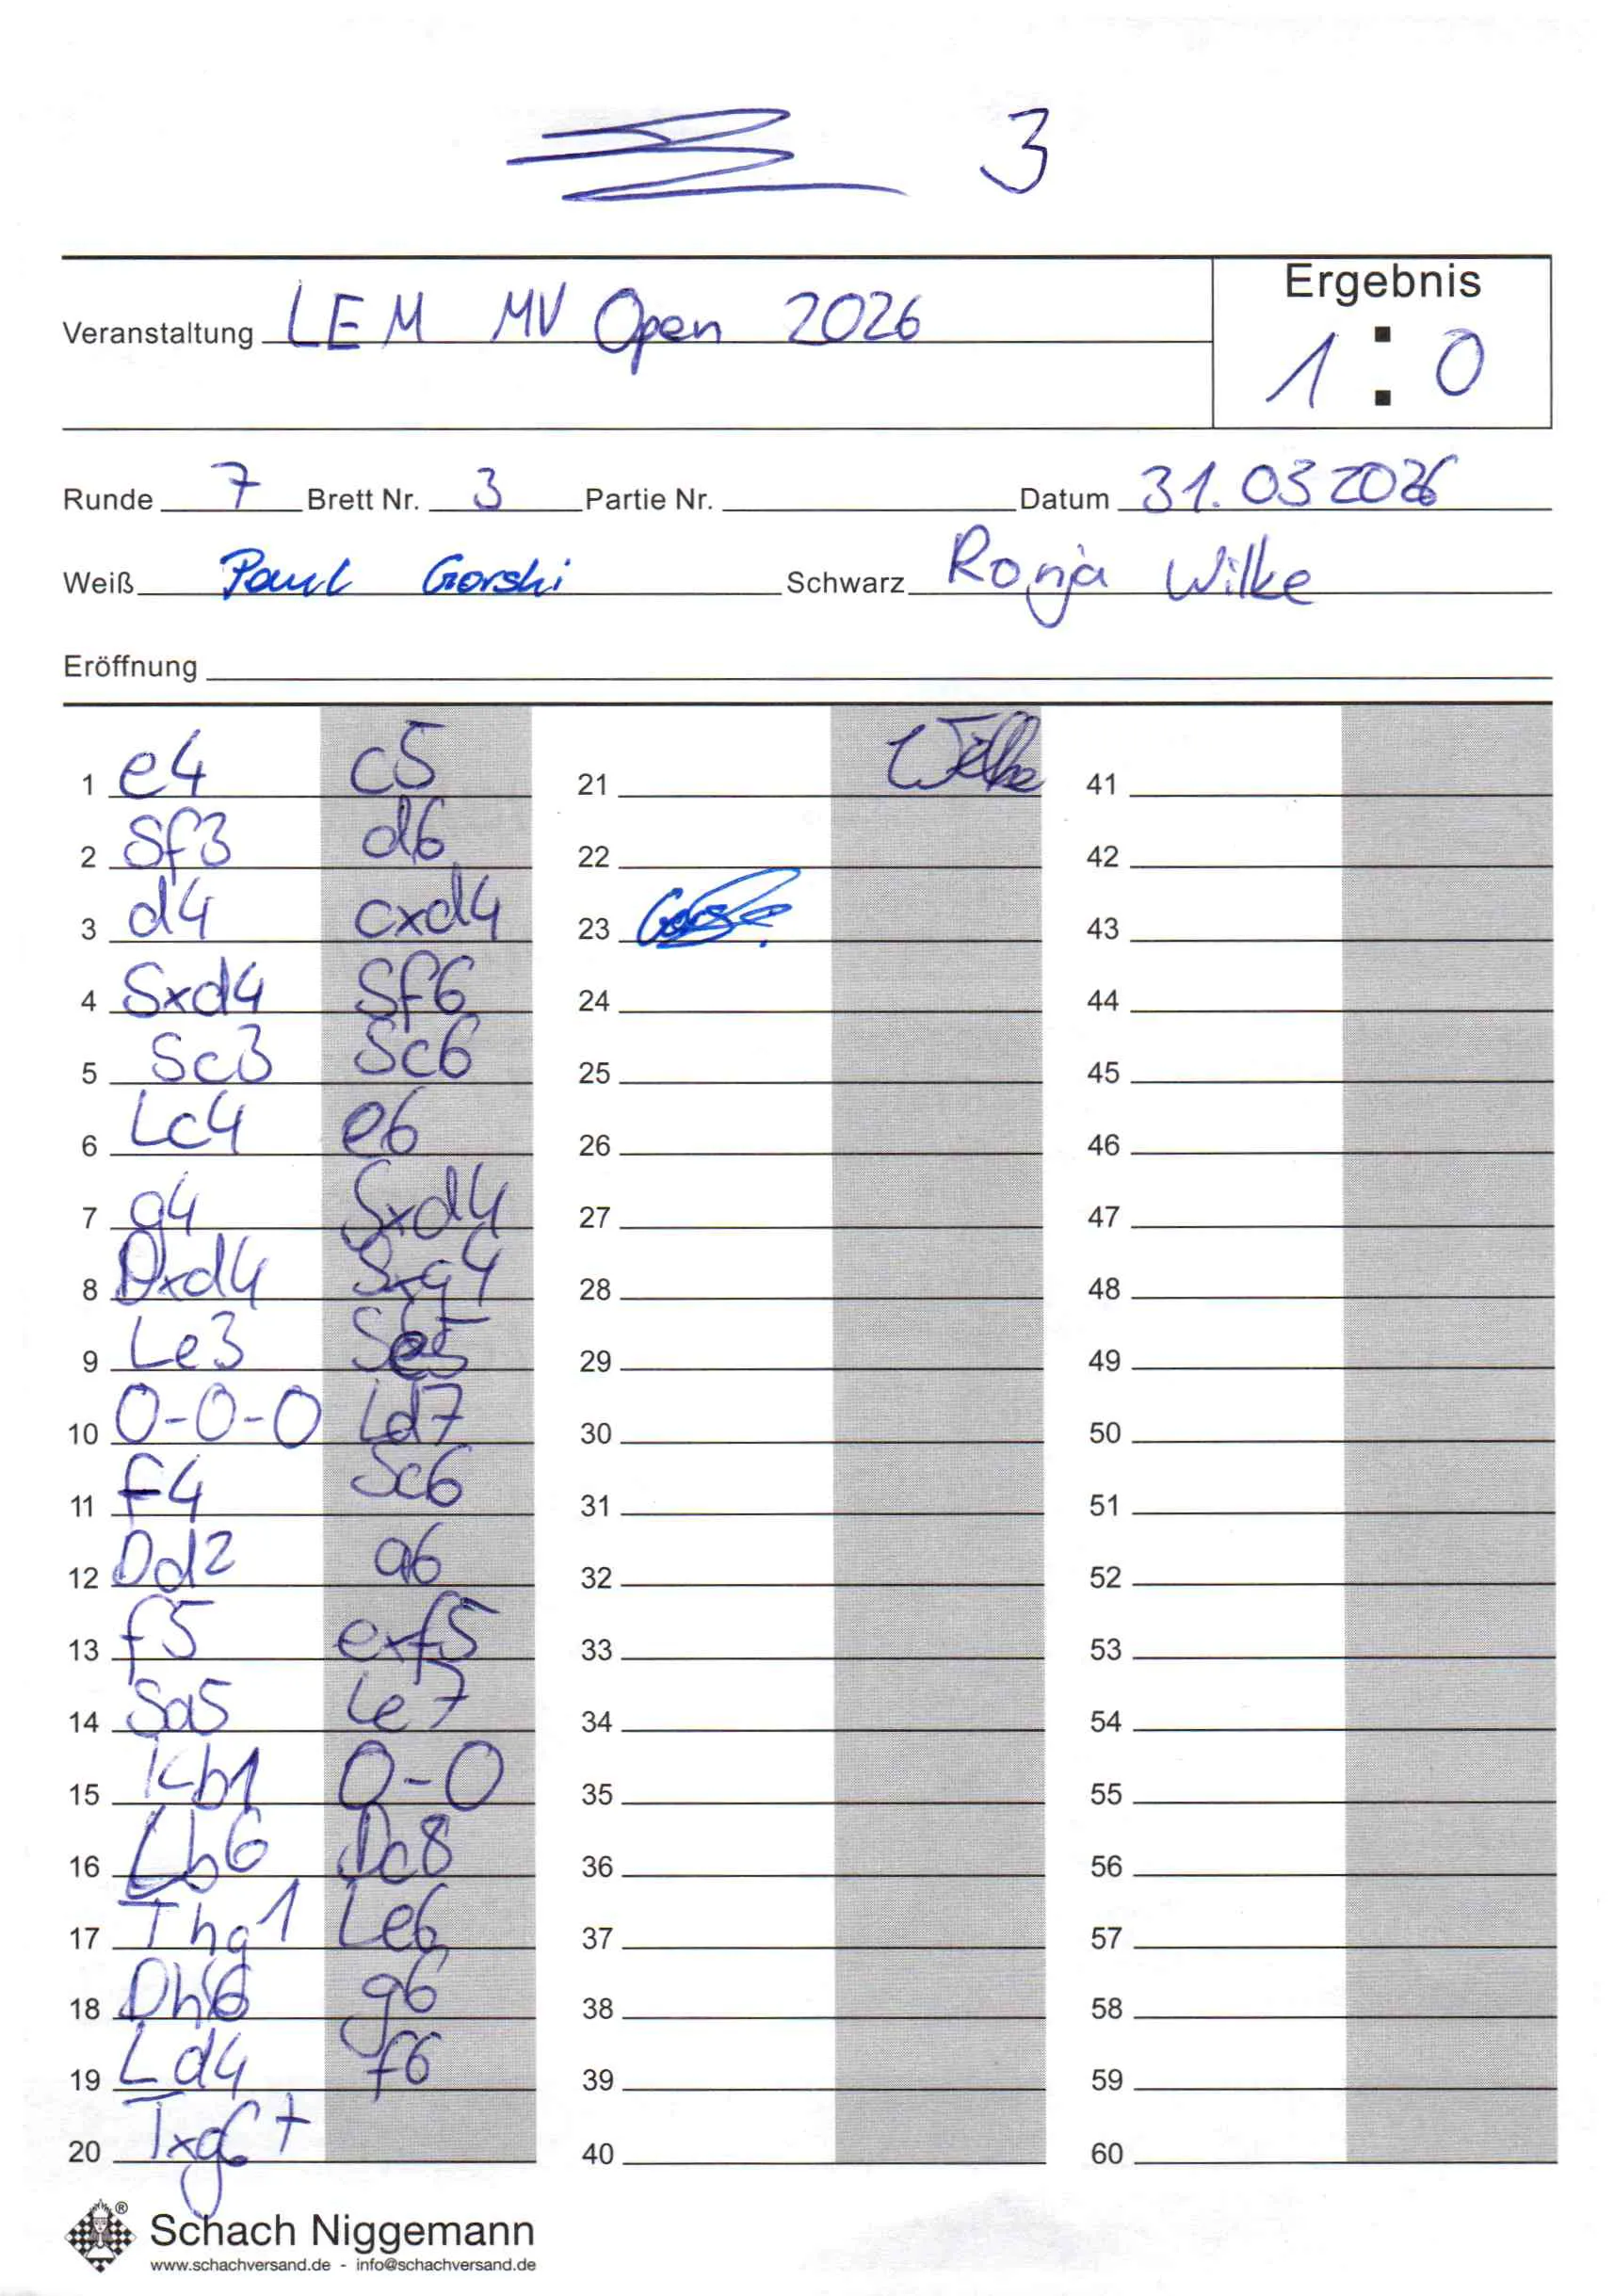 3
Ergebnis
Veranstaltung LEM MV Open 2026
1 : 0
Runde 7 Brett Nr. 3 Partie Nr. Datum 31.03 2026
Weiß Paul Gorski Schwarz Ronja Wilke
Eröffnung
1 e4 c5
2 Sf3 d6
3 d4 cxd4
4 Sxd4 Sf6
5 Sc3 Sc6
6 Lc4 e6
7 g4 Sxd4
8 Dxd4 Sxg4
9 Le3 Se5
10 0-0-0 Ld7
11 f4 Sc6
12 Dd2 a6
13 f5 exf5
14 Sd5 Le7
15 Kb1 0-0
16 Lb6 Dc8
17 Thg1 Le6
18 Dh6 g6
19 Ld4 f6
20 Txg6+
21 Wilke
22
23 Gorski
24
25
26
27
28
29
30
31
32
33
34
35
36
37
38
39
40
41
42
43
44
45
46
47
48
49
50
51
52
53
54
55
56
57
58
59
60
Schach Niggemann
www.schachversand.de - info@schachversand.de